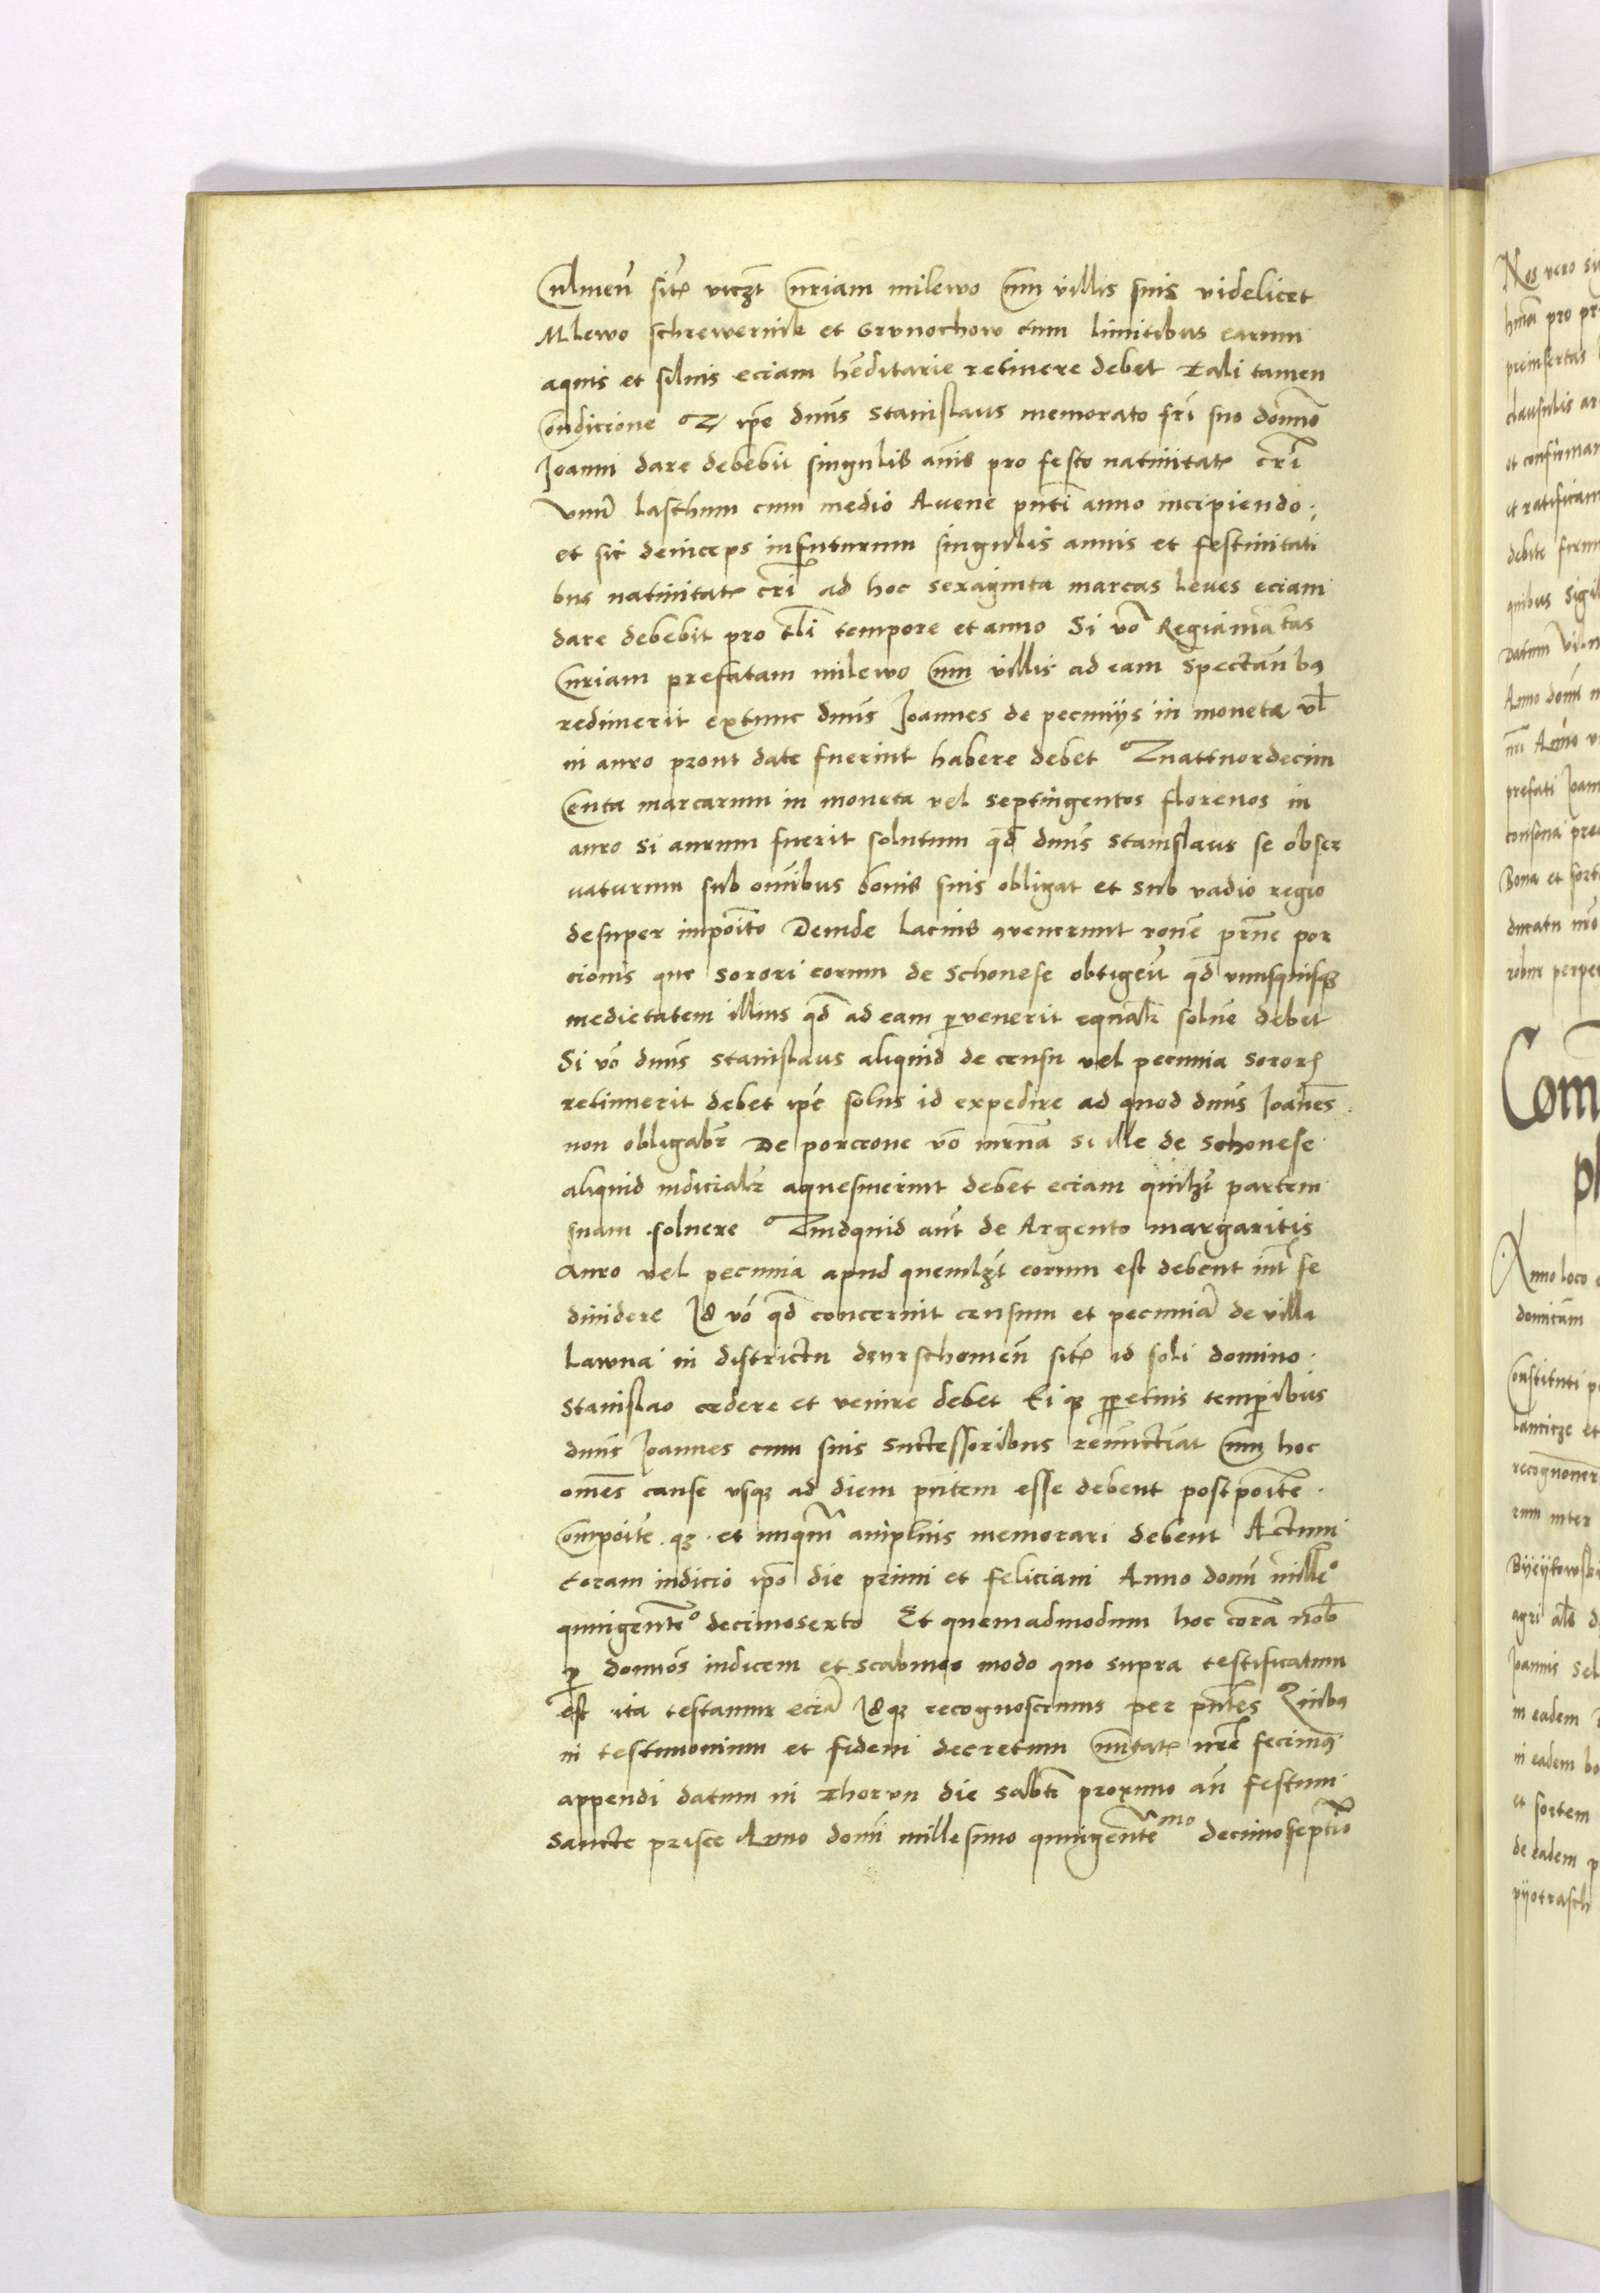 Culmeñ sitꝭ viczt Curiam milewo cum villis suis videlicet
Mlewo schrewernik et Grvnochow cum limitibus earum
aquis et siluis eciam hẽditarie retinere debet Tali tamen
condicione Qꝫ ip̃e dñus Stanislaus memorato fr̃i suo domño
Joanni dare debebit singulis añis pro festo natiuitatꝭ cr̃i
vnũ lasthum cum medio Auene pñti anno incipiendo
et sic deinceps infuturum singulis annis et festiuitati
bus natiuitatꝭ cr̃i ad hoc sexaginta marcas leues eciam
dare debebit pro tl̃i tempore et anno Si vo᷑ Regia ma^tas
Curiam prefatam milewo cum villis ad eam Spectañbꝰ
redimerit extunc dñus Joannes de pecuniys in moneta vl̃
in auro prout date fuerint habere debet Quattuordecim
centa marcarum in moneta vel septingentos florenos in
auro si aurum fuerit solutum qd̃ dñus Stanislaus se obser
vaturum sub om̃ibus bonis suis obligat et sub vadio regio
desuper impoĩto Deinde lacius ꝯvenerunt roñe pr̃ne por
cionis que sorori eorum de Schonese obtigeũt qd̃ vnusquisqꝫ
medietatem illius qd̃ ad eam ꝑvenerit equalr̃ solue᷑ debet
Si vo᷑ dñus Stanislaus aliquid de censu vel pecunia sororꝭ
retinuerit debet ip̃e solus id expedire ad quod dñus Joañes
non obligabr̃ De porcione vo᷑ mr̃na si ille de Schonese
aliquid iudicialr̃ aquesiuerint debet eciam quilꝫt partem
suam soluere Quidquid aut̃ de Argento margaritis
Auro vel pecunia apud quemlꝫt eorum est debent int̃ se
diuidere Id vo᷑ qd̃ concernit censum et pecuniã de villa
Lawna in districtu dyrschomeñ sitꝭ id soli domino
Stanislao cedere et venire debet Ei qꝫ ꝑpetuis temꝑibus
dñus Joannes cum suis successoribus reñuncciat Cum hoc
om̃es cause vsqꝫ ad diem pñtem esse debent postpoĩte
compoĩte qꝫ et nunqꝫ̃ amplius memorari debent Actum
coram iudicio ip̃o die primi et feliciani Anno domĩ mille^o
quingente^o decimosexto Et quemadmodum hoc corã nob̃
ꝑ domños iudicem et scabinos modo quo supra testificatum
est ita testamur eciã Idqꝫ recognoscimus per pñtes Quibꝰ
in testimonium et fidem decretum Ciuitatꝭ nr̃e fecimꝰ
appendi datum in Thorvn die Sab̃ti proxumo añ festum
Sancte prisce Anno domĩ millesimo quingente^mo decimoseptĩo